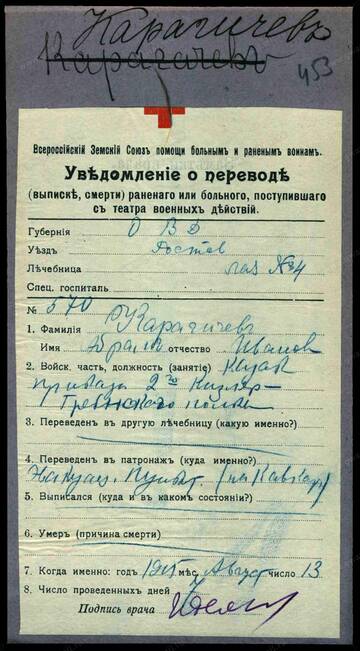 Карагичевъ
Карагачевъ
453
Всероссійскій Земскій Союзъ помощи больнымъ и раненымъ воинамъ.
Увѣдомленіе о переводѣ
(выпискѣ, смерти) раненаго или больного, поступившаго
съ театра военныхъ дѣйствій.
Губернія О В Д
Уѣздъ Ростов
Лѣчебница лаз №4
Спец. госпиталь
№ 570
1. Фамилія Карагичевъ
Имя отчество Иванов
2. Войск. часть, должность (занятіе) Казак
2го Кизляр-
Гребенского полка
3. Переведенъ въ другую лѣчебницу (какую именно?)
4. Переведенъ въ патронажъ (куда именно?)
Пункт (на Кавказ)
5. Выписался (куда и въ какомъ состояніи?)
6. Умеръ (причина смерти)
7. Когда именно: годъ 1915 мѣс. Август число 13
8. Число проведенныхъ дней
Подпись врача